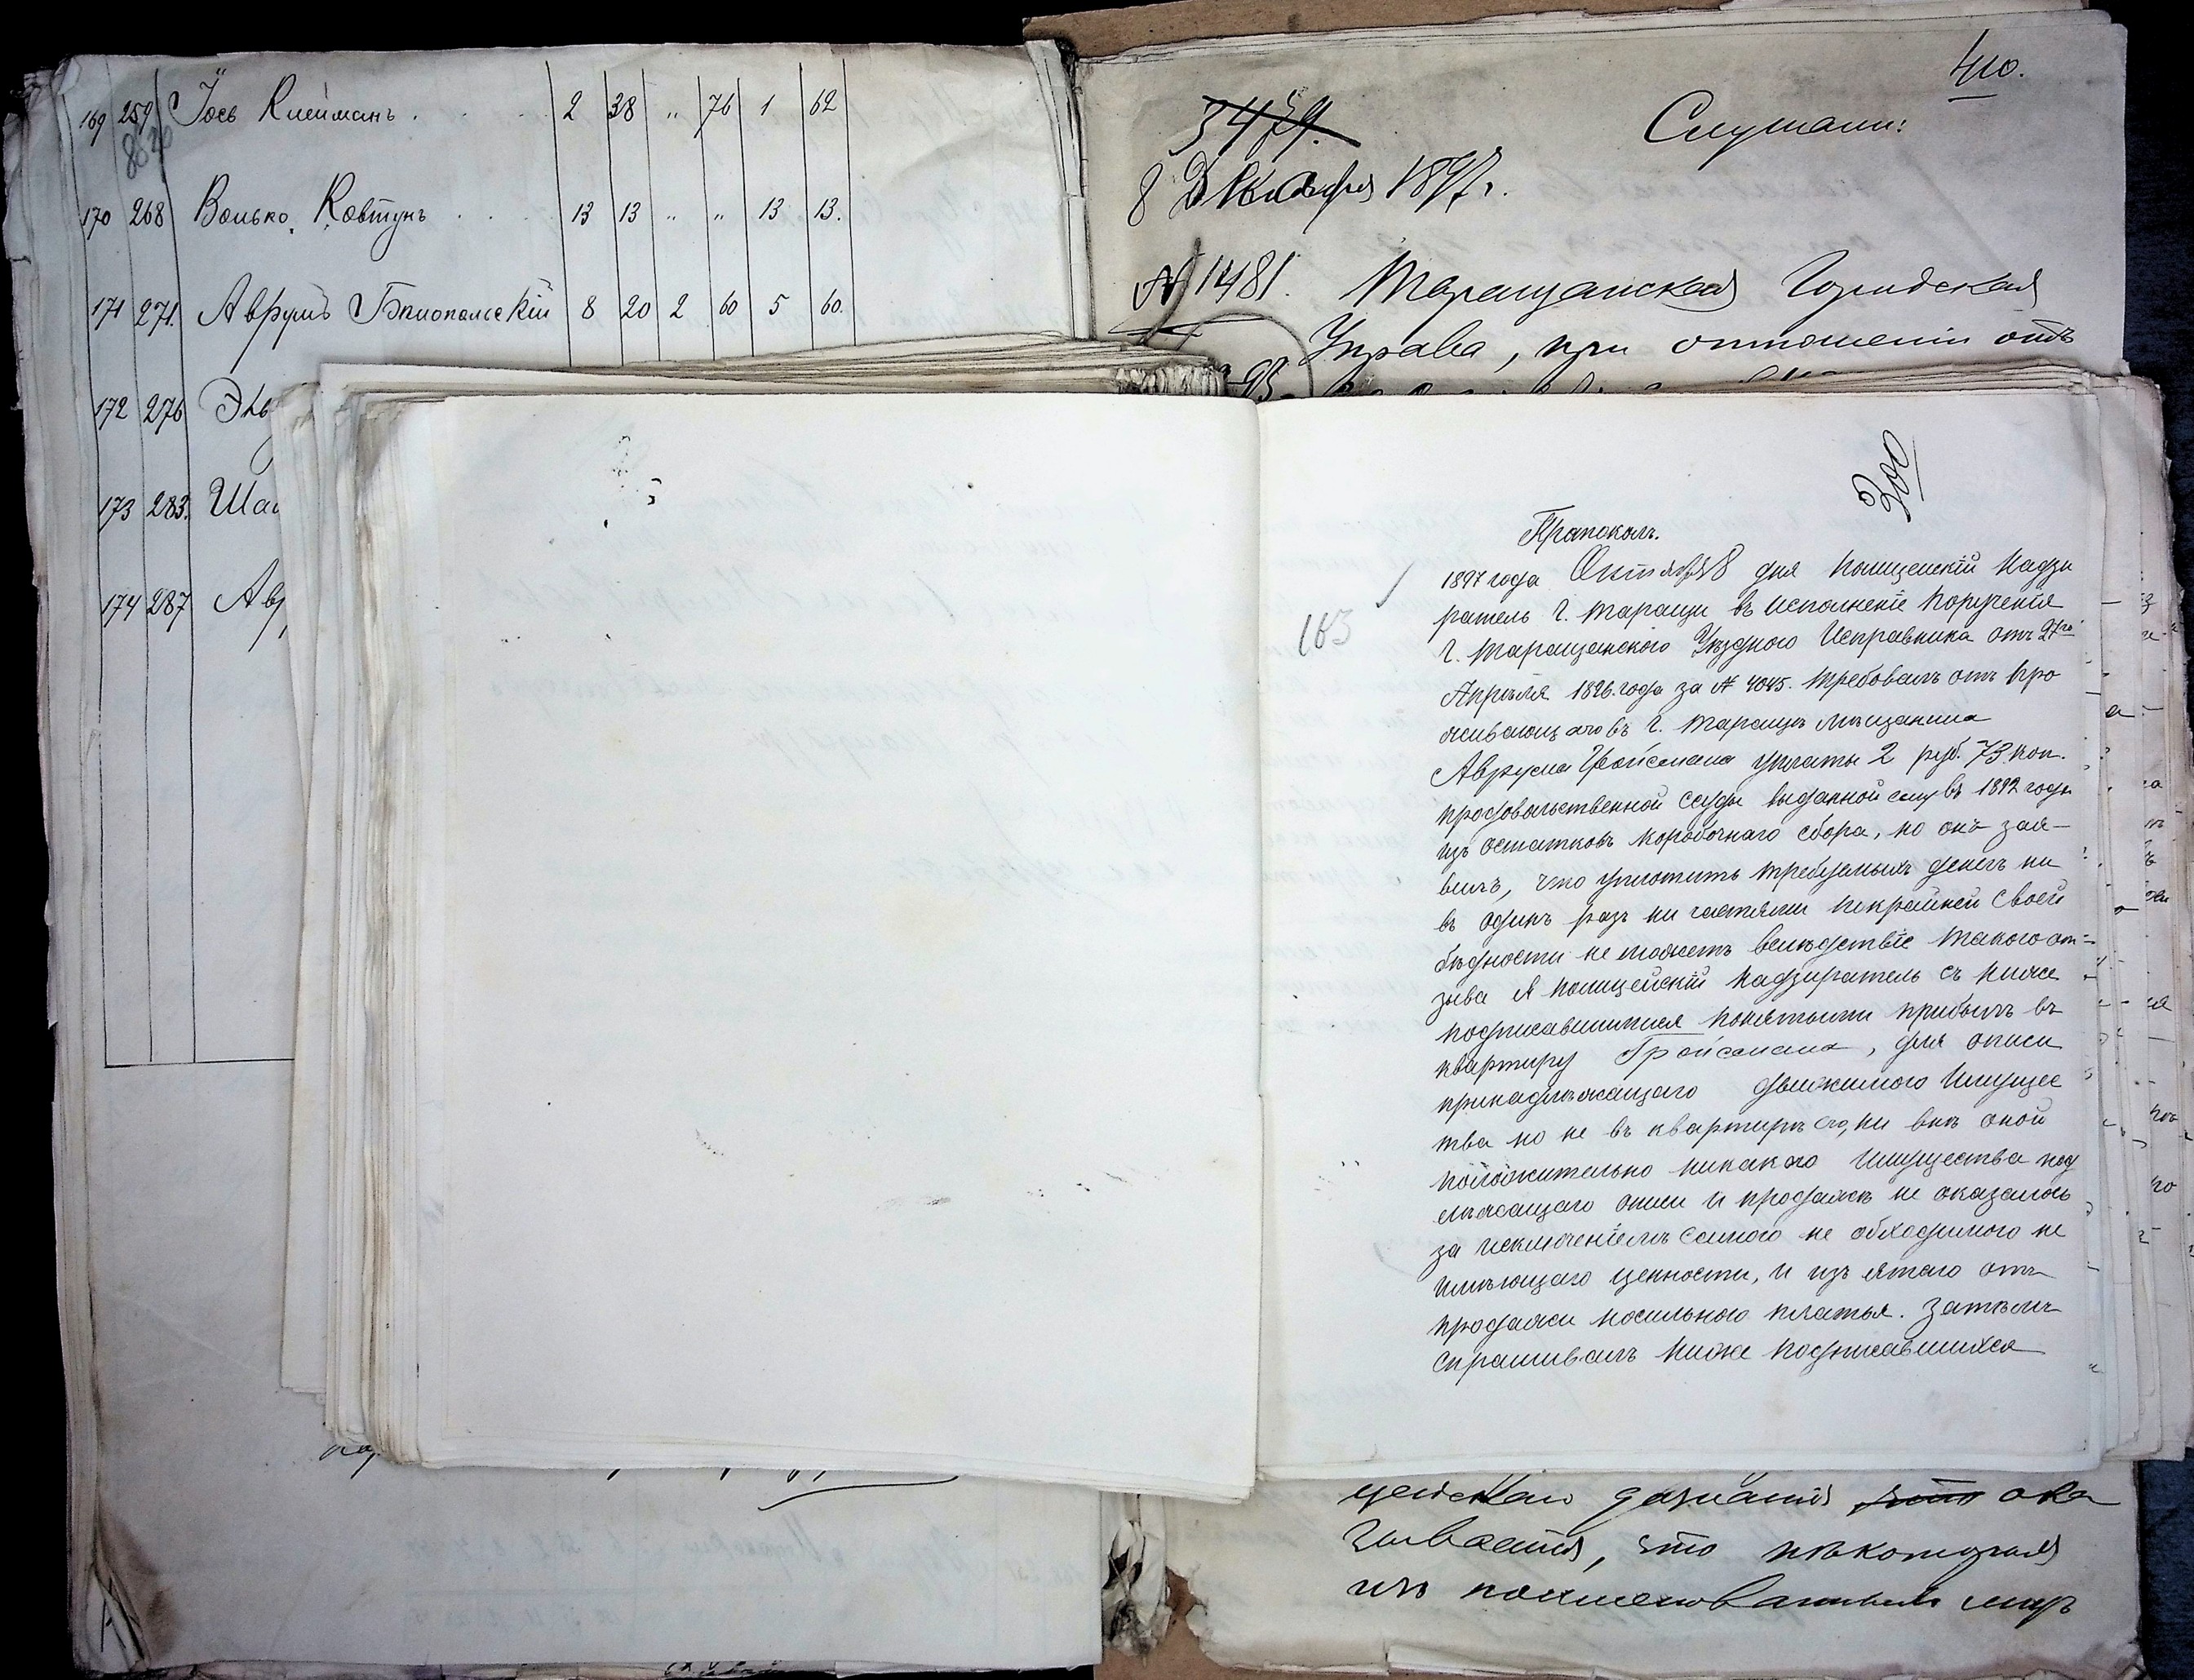 169 259 Іось Клейманъ . . . 2 38 „ 76 1 62
170 268 Волько Ковтунъ . . . 13 13 „ „ 13 13.
171 271. Аврумъ Бѣлопольскій 8 20 2 60 5 60.
172 276
173 283.
174 287
410.
3479.
Слушали:
8 Декабря 1897 г.
№ 1481. Таращанская Городская
Управа, при отношеніи отъ
200
Протоколъ.
1897 года Октября 8 дня Полицейскій Надзи
ратель г. Таращи въ исполненіе порученія
г. Таращанскаго Уѣзднаго Исправника отъ 27го
Апрѣля 1896 года за № 4045. требовалъ отъ про
живающаго въ г. Таращѣ мѣщанина
Аврума Гройсмана уплаты 2 руб. 73 коп.
продовольственной ссуды выданной ему въ 1892 году
изъ остатковъ коробочнаго сбора, но онъ зая-
вилъ, что уплотить требуемыхъ денегъ ни
въ одинъ разъ ни частями покрайней своей
бѣдности не можетъ вслѣдствіе такого от=
зыва я Полицейскій Надзиратель съ ниже
подписавшимися понятыми прибылъ въ
квартиру Гройсмана, для описи
принадлежащаго движимого имущес
тва но не въ квартирѣ его, ни внѣ оной
положительно никакого имущества под
лежащаго описи и продажѣ не оказалось
за исключеніемъ самого не обходимого не
имѣющаго ценности, и изъ ятаго отъ
продажи носильного платья. Затѣмъ
спрашивалъ ниже подписавшихся
163
дознанія ока
зывается, что нѣкоторыя
изъ поименованныхъ лицъ